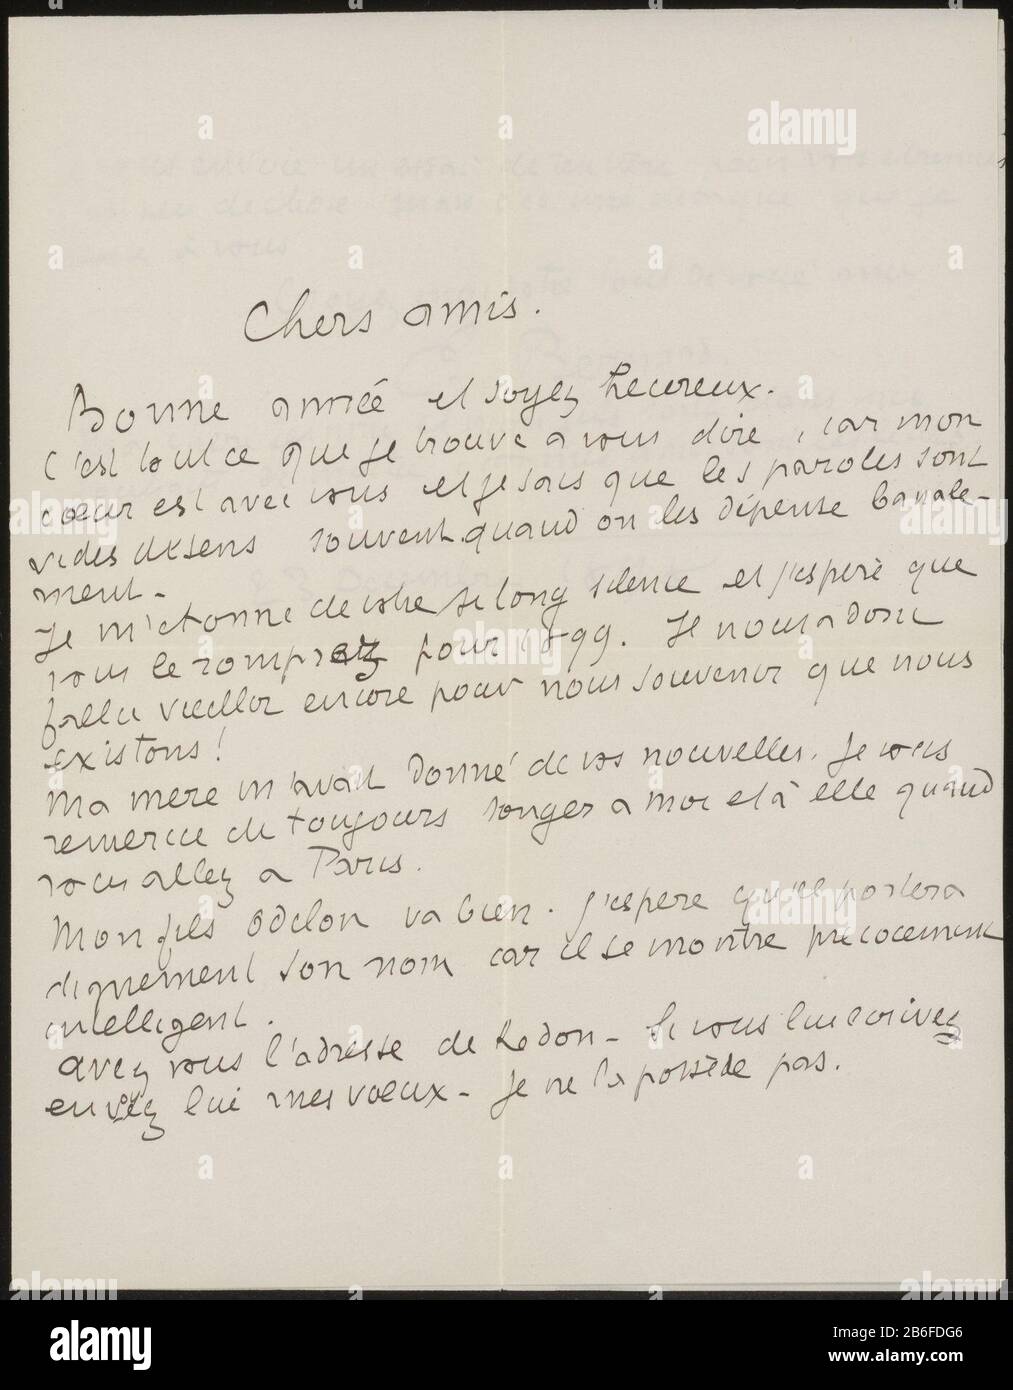 Chers amis.
Bonne année et soyez heureux.
C'est tout ce que je trouve a vous dire, car mon
cœur est avec vous et je sais que les paroles sont
vides de sens souvent quand on les dépense banale-
ment -
Je m'etonne de votre si long silence et j'espère que
vous le romprez pour 1899. Je nous a donc
fallu vieillir encore pour nous souvenir que nous
existons!
Ma mere m'avait donné de vos nouvelles. Je vous
remercie de toujours songer a moi et à elle quand
vous allez a Paris.
Mon fils Odelon va bien. j'espere qu'il portera
dignement son nom car il se montre précocement
intelligent.
avez vous l'adresse de Redon - Si vous lui écrivez
envoyez lui mes vœux - Je ne la possède pas.
alamy
Image ID: B6FDG6
www.alamy.com